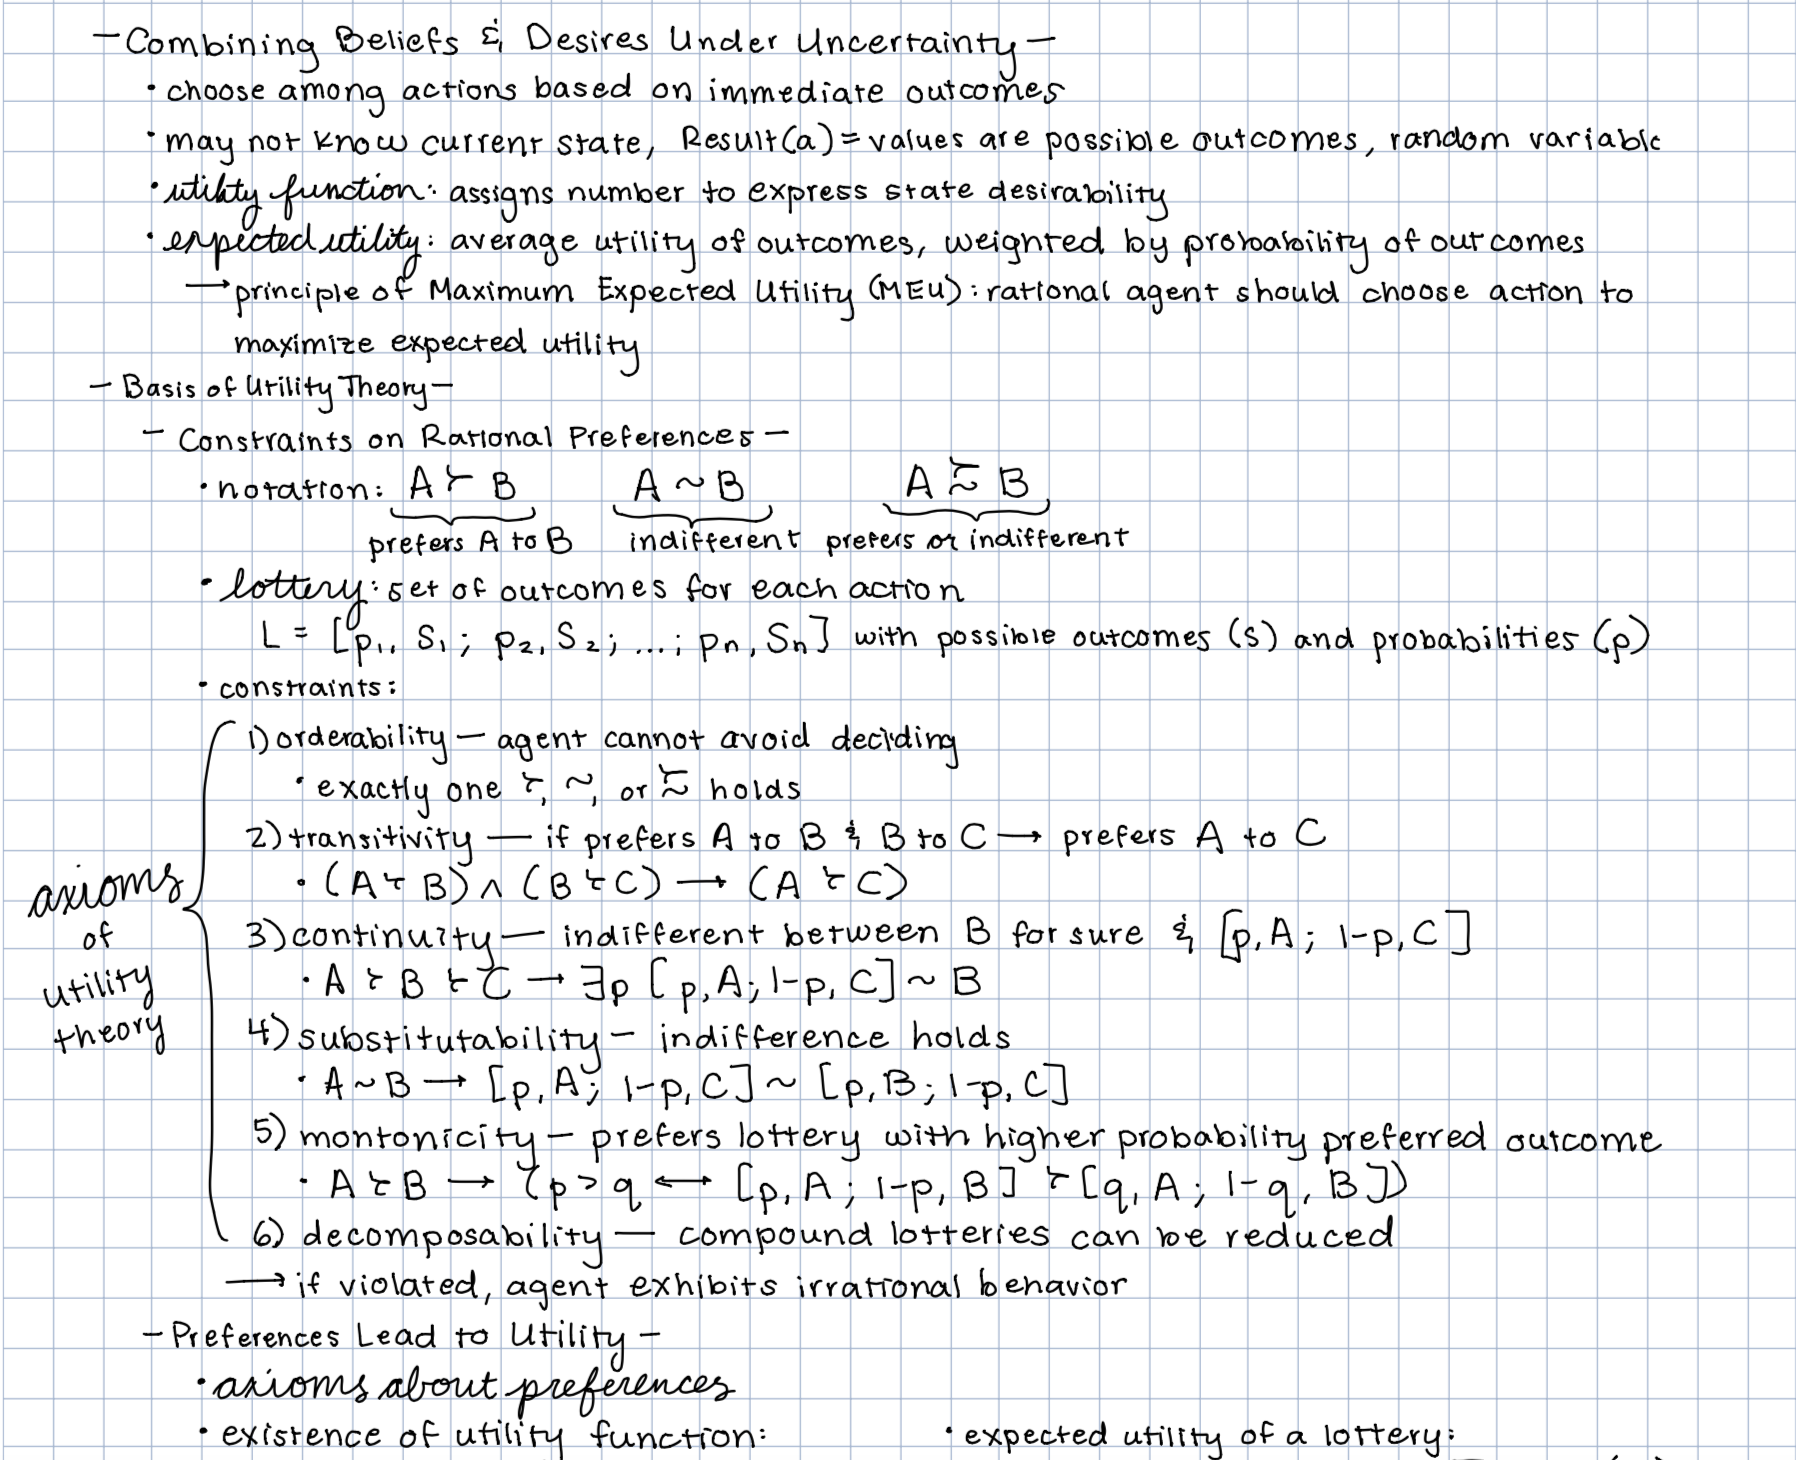 — Combining Beliefs & Desires Under Uncertainty —
• choose among actions based on immediate outcomes
• may not know current state, Result(a) = values are possible outcomes, random variable
• utility function: assigns number to express state desirability
• expected utility: average utility of outcomes, weighted by probability of outcomes
→ principle of Maximum Expected Utility (MEU): rational agent should choose action to
maximize expected utility
— Basis of Utility Theory —
— Constraints on Rational Preferences —
• notation: A ≻ B A ~ B A ≿ B
prefers A to B indifferent prefers or indifferent
• lottery: set of outcomes for each action
L = [p₁, S₁; p₂, S₂; ...; pn, Sn] with possible outcomes (s) and probabilities (p)
• constraints:
axioms of utility theory
1) orderability — agent cannot avoid deciding
• exactly one ≻, ~, or ≿ holds
2) transitivity — if prefers A to B & B to C → prefers A to C
• (A ≻ B) ∧ (B ≻ C) → (A ≻ C)
3) continuity — indifferent between B for sure & [p, A; 1-p, C]
• A ≻ B ≻ C → ∃p [p, A; 1-p, C] ~ B
4) substitutability — indifference holds
• A ~ B → [p, A; 1-p, C] ~ [p, B; 1-p, C]
5) montonicity — prefers lottery with higher probability preferred outcome
• A ≻ B → (p > q ↔ [p, A; 1-p, B] ≻ [q, A; 1-q, B])
6) decomposability — compound lotteries can be reduced
→ if violated, agent exhibits irrational behavior
— Preferences Lead to Utility —
• axioms about preferences
• existence of utility function: • expected utility of a lottery: